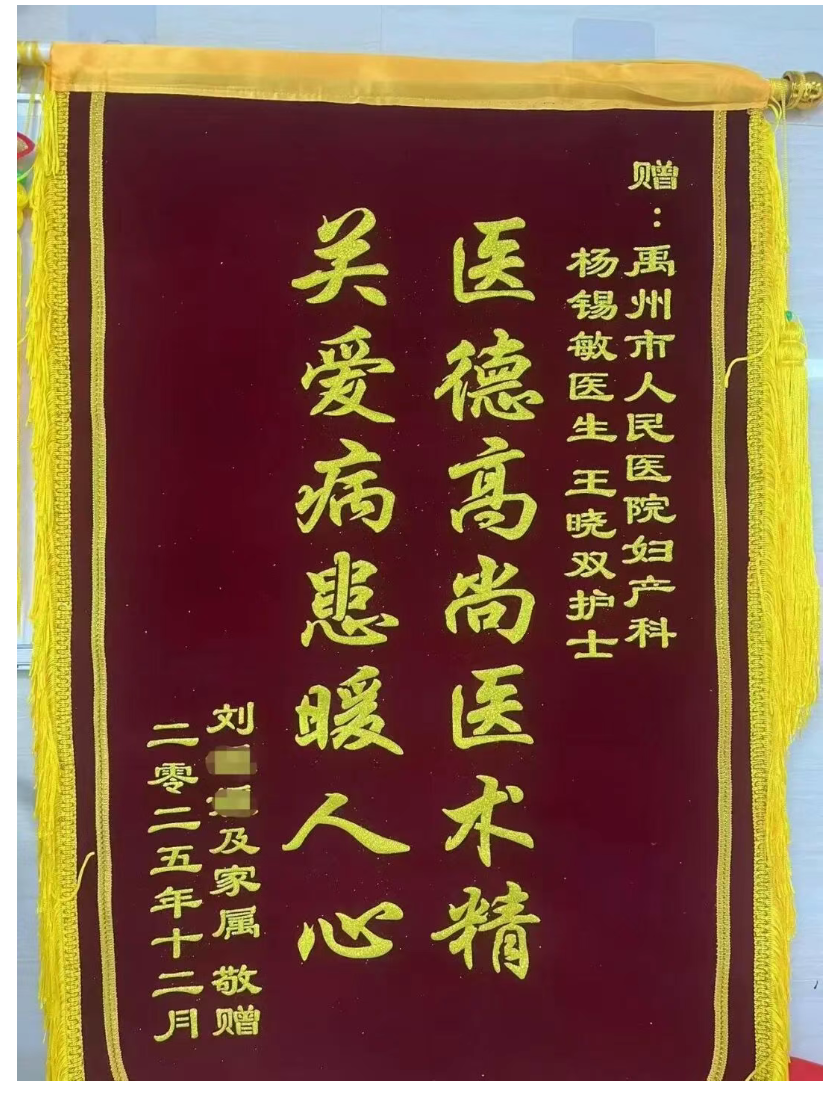 赠：禹州市人民医院妇产科
杨锡敏医生 王晓双护士
医德高尚医术精
关爱病患暖人心
刘及家属 敬赠
二零二五年十二月